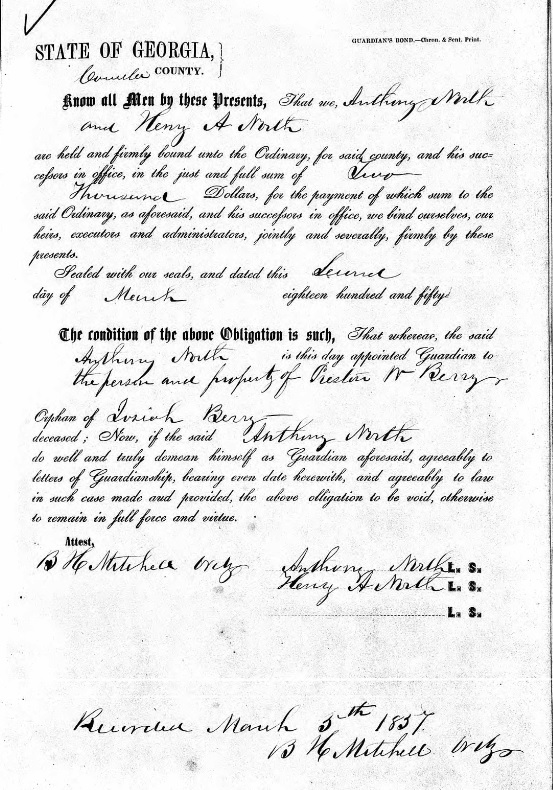 GUARDIAN'S BOND.—Chron. & Sent. Print.
STATE OF GEORGIA,
Coweta COUNTY.
Know all Men by these Presents, That we, Anthony North
and Henry A North
are held and firmly bound unto the Ordinary, for said county, and his suc-
cessors in office, in the just and full sum of Two
Thousand Dollars, for the payment of which sum to the
said Ordinary, as aforesaid, and his successors in office, we bind ourselves, our
heirs, executors and administrators, jointly and severally, firmly by these
presents.
Sealed with our seals, and dated this Second
day of March eighteen hundred and fifty
The condition of the above Obligation is such, That whereas, the said
Anthony North is this day appointed Guardian to
the person and property of Preston W Berry
Orphan of Josiah Berry
deceased; Now, if the said Anthony North
do well and truly demean himself as Guardian aforesaid, agreeably to
letters of Guardianship, bearing even date herewith, and agreeably to law
in such case made and provided, the above obligation to be void, otherwise
to remain in full force and virtue.
Attest,
B H Mitchell Ordy Anthony North L. S.
Henry A North L. S.
L. S.
Recorded March 5th 1857.
B H Mitchell Ordy